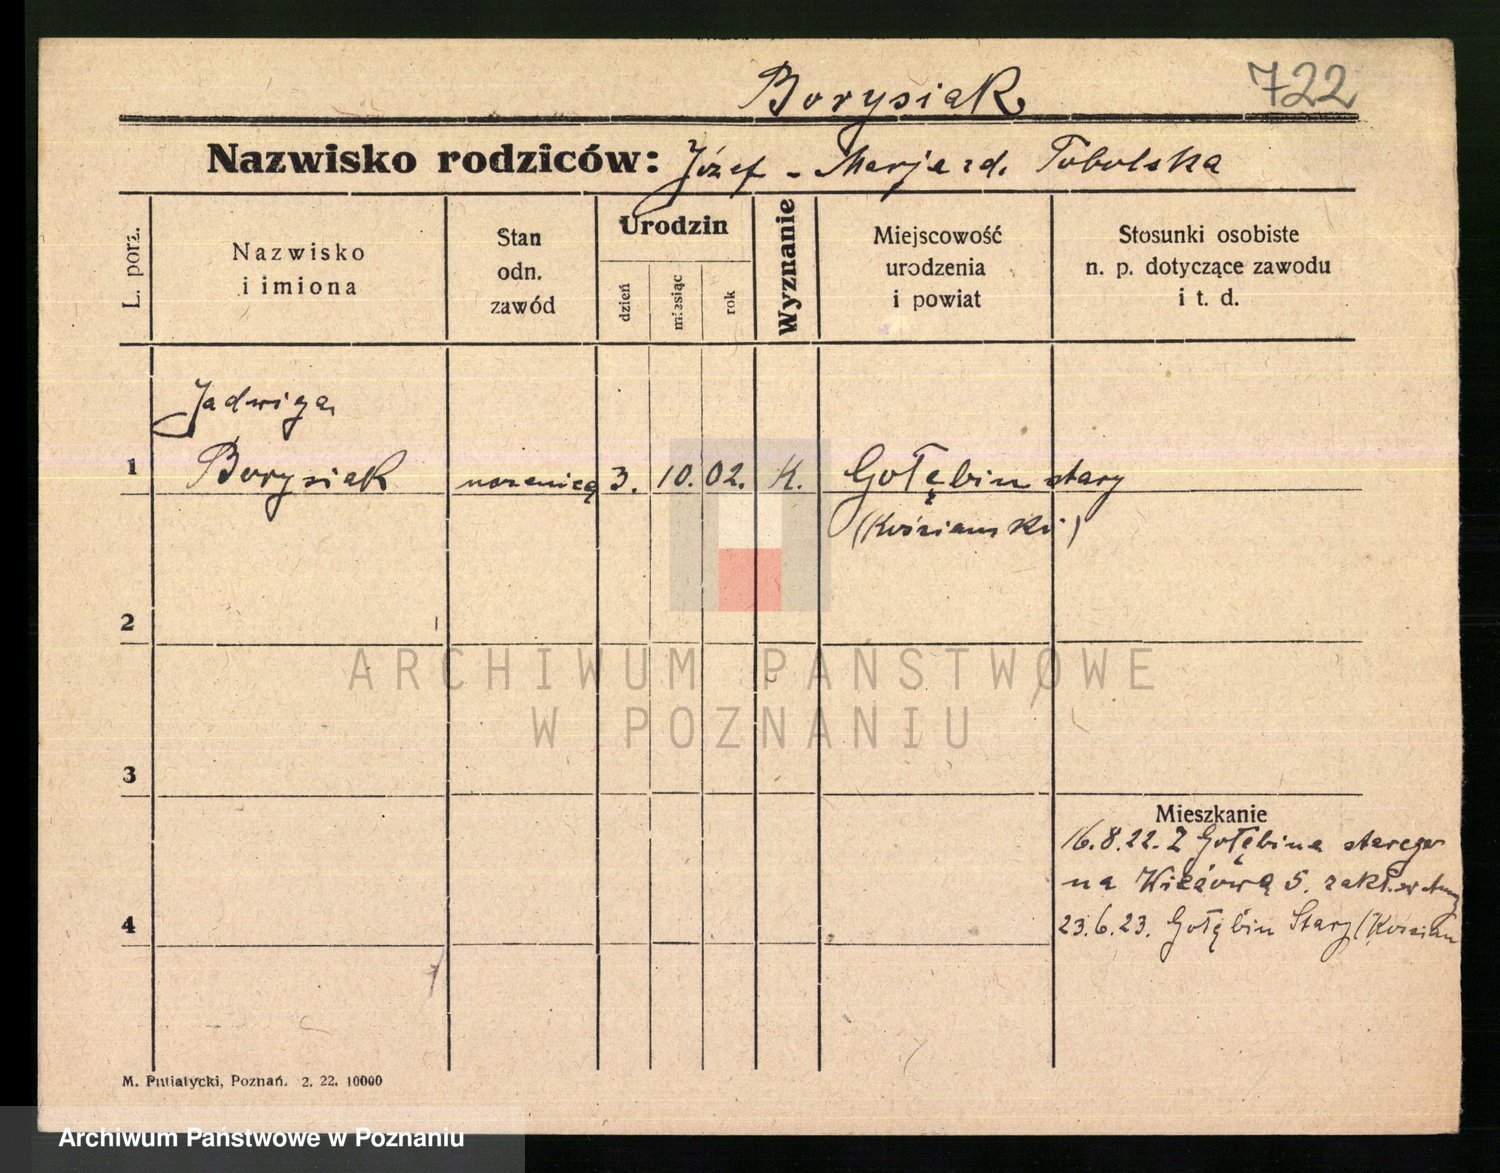 Borysiak
722
Nazwisko rodziców: Józef - Marja zd. Tobolska
L. porz.
Nazwisko
i imiona
Stan
odn.
zawód
Urodzin
dzień
miesiąc
rok
Wyznanie
Miejscowość
urodzenia
i powiat
Stosunki osobiste
n. p. dotyczące zawodu
i t. d.
Jadwiga
1 Borysiak 3. 10. 02. K. Gołębin stary
(Kościański)
2
ARCHIWUM PAŃSTWOWE
W POZNANIU
3
Mieszkanie
16.8.22. Z Gołębina starego
na Wieżową 5.
4
23.6.23. Gołębin Stary (Kościan
M. Putiatycki, Poznań. 2. 22. 10000
Archiwum Państwowe w Poznaniu